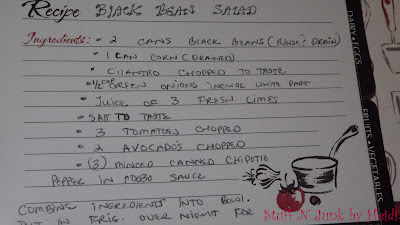 Recipe BLACK BEAN SALAD
Ingredients: • 2 CANS BLACK BEANS (RINSE & DRAIN)
• 1 CAN CORN (DRAINED)
• CILANTRO CHOPPED TO TASTE
• 1/2 CUP GREEN ONIONS INCLUDE WHITE PART
• JUICE OF 3 FRESH LIMES
• SALT TO TASTE
• 3 TOMATOES CHOPPED
• 2 AVOCADO'S CHOPPED
• (3) MINCED CANNED CHIPOTLE
PEPPER IN ADOBO SAUCE
COMBINE INGREDIENTS INTO BOWL.
PUT IN FRIG. OVER NIGHT FOR
DAIRY • EGGS
FRUITS • VEGETABLES
Stuff N' Junk by Heidi